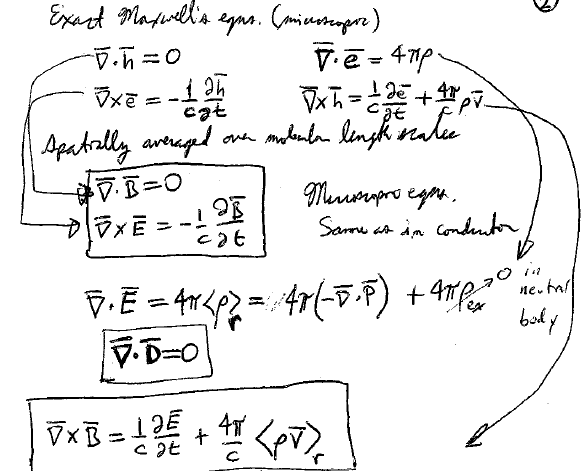 ②
Exact Maxwell's eqns. (microscopic)
∇̄·h̄ = 0    ∇̄·ē = 4πρ
∇̄×ē = -1/c ∂h̄/∂t    ∇̄×h̄ = 1/c ∂ē/∂t + 4π/c ρv̄
Spatially averaged over molecular length scales
∇̄·B̄ = 0
∇̄×Ē = -1/c ∂B̄/∂t
eqns.
Same as in conductor
∇̄·Ē = 4π<ρ>_r = 4π(-∇̄·P̄) + 4πρ_ex → 0 in neutral body
∇̄·D̄ = 0
∇̄×B̄ = 1/c ∂Ē/∂t + 4π/c <ρv̄>_r